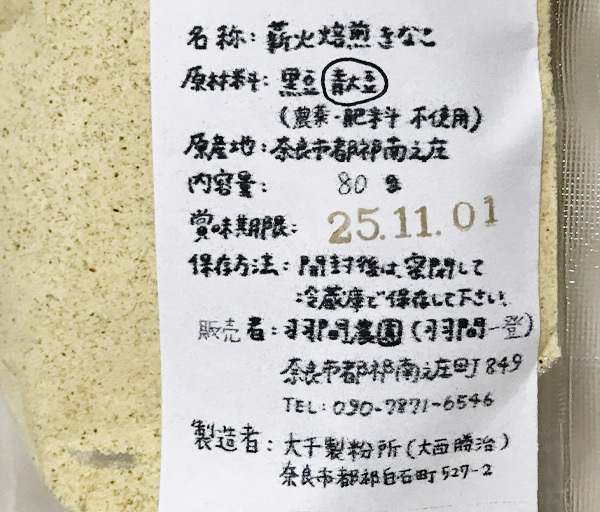 名称：薪火焙煎きなこ
原材料：黒豆 青大豆
（農薬・肥料 不使用）
原産地：奈良市都祁南之庄
内容量： 80g
賞味期限：25.11.01
保存方法：開封後は、密閉して
冷蔵庫で保存して下さい。
販売者：羽間農園（羽間一登）
奈良市都祁南之庄町849
TEL：090-7871-6546
製造者：大千製粉所（大西勝治）
奈良市都祁白石町527-2